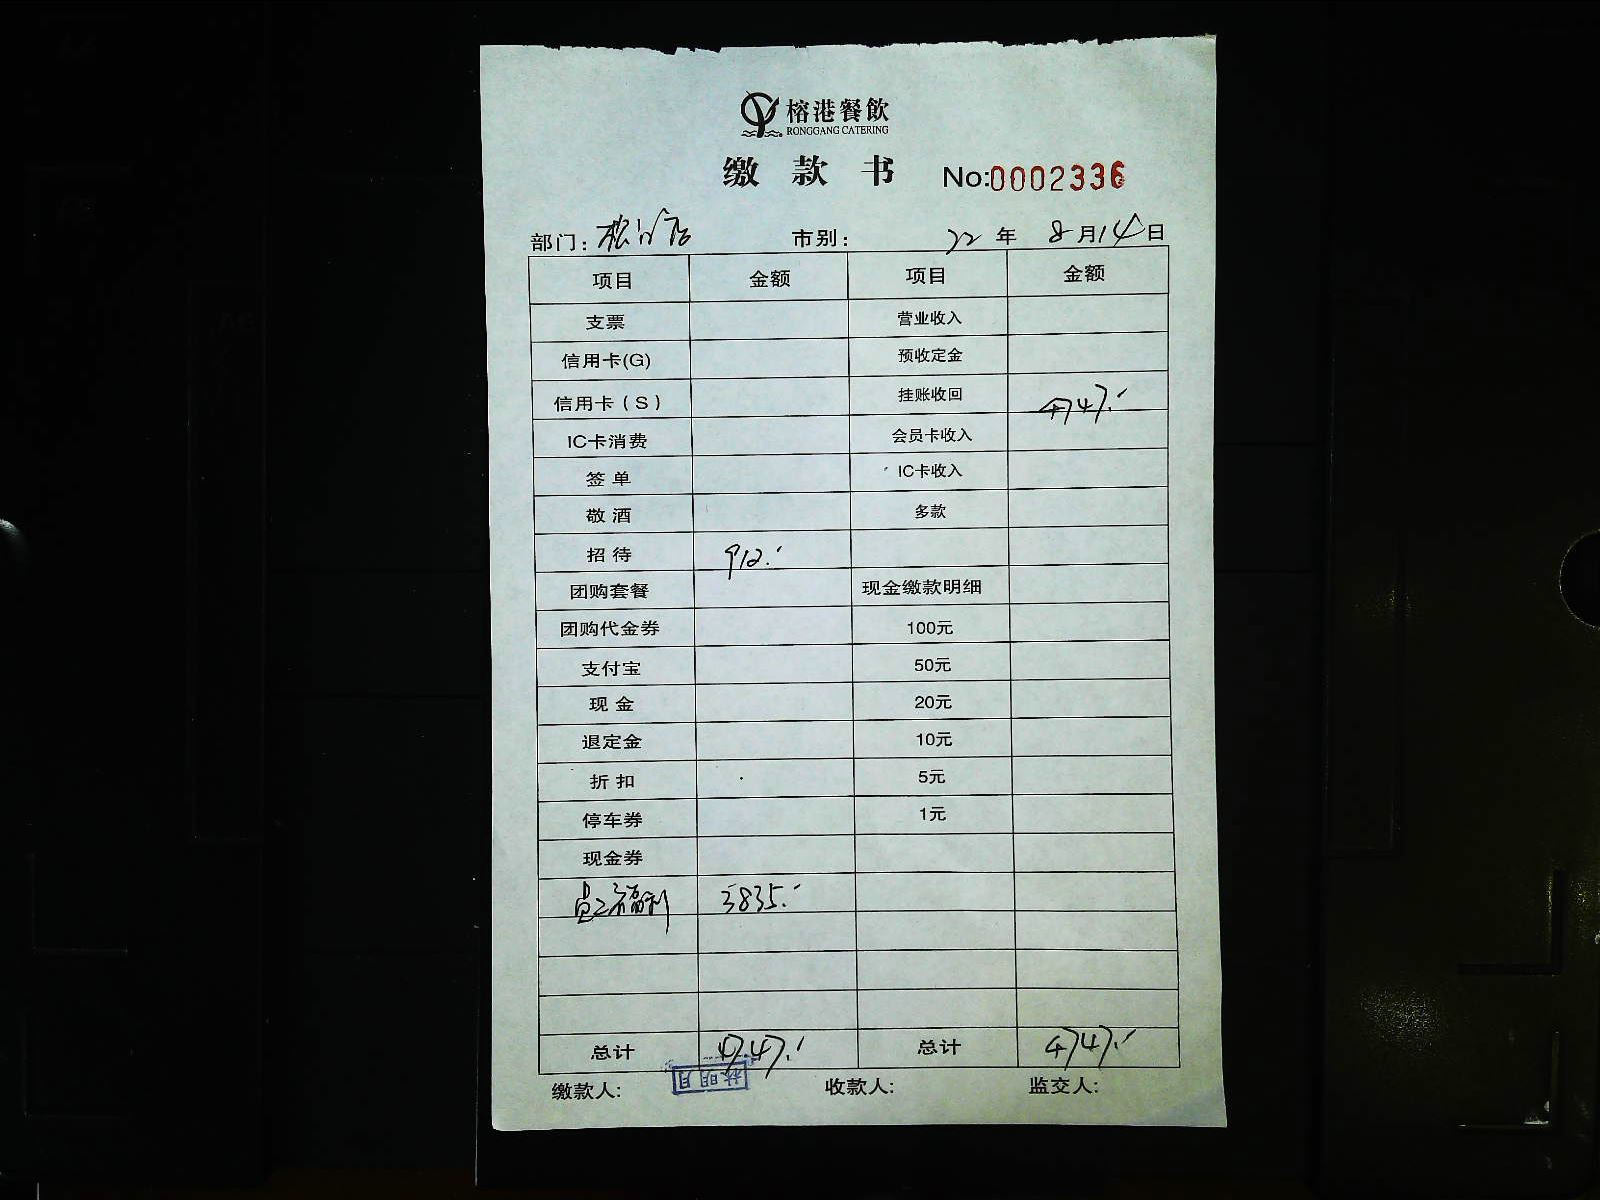 榕港餐飲
RONGGANG CATERING
缴 款 书 No:0002336
部门: 市别: 22 年 8 月 14 日
项目 金额 项目 金额
支票 营业收入
信用卡(G) 预收定金
信用卡(S) 挂账收回 4747.-
IC卡消费 会员卡收入
签 单 IC卡收入
敬 酒 多款
招 待 912.-
团购套餐 现金缴款明细
团购代金券 100元
支付宝 50元
现 金 20元
退定金 10元
折 扣 5元
停车券 1元
现金券
员工福利 3835.-
总计 4747.- 总计 4747.-
缴款人: 林明月 收款人: 监交人: